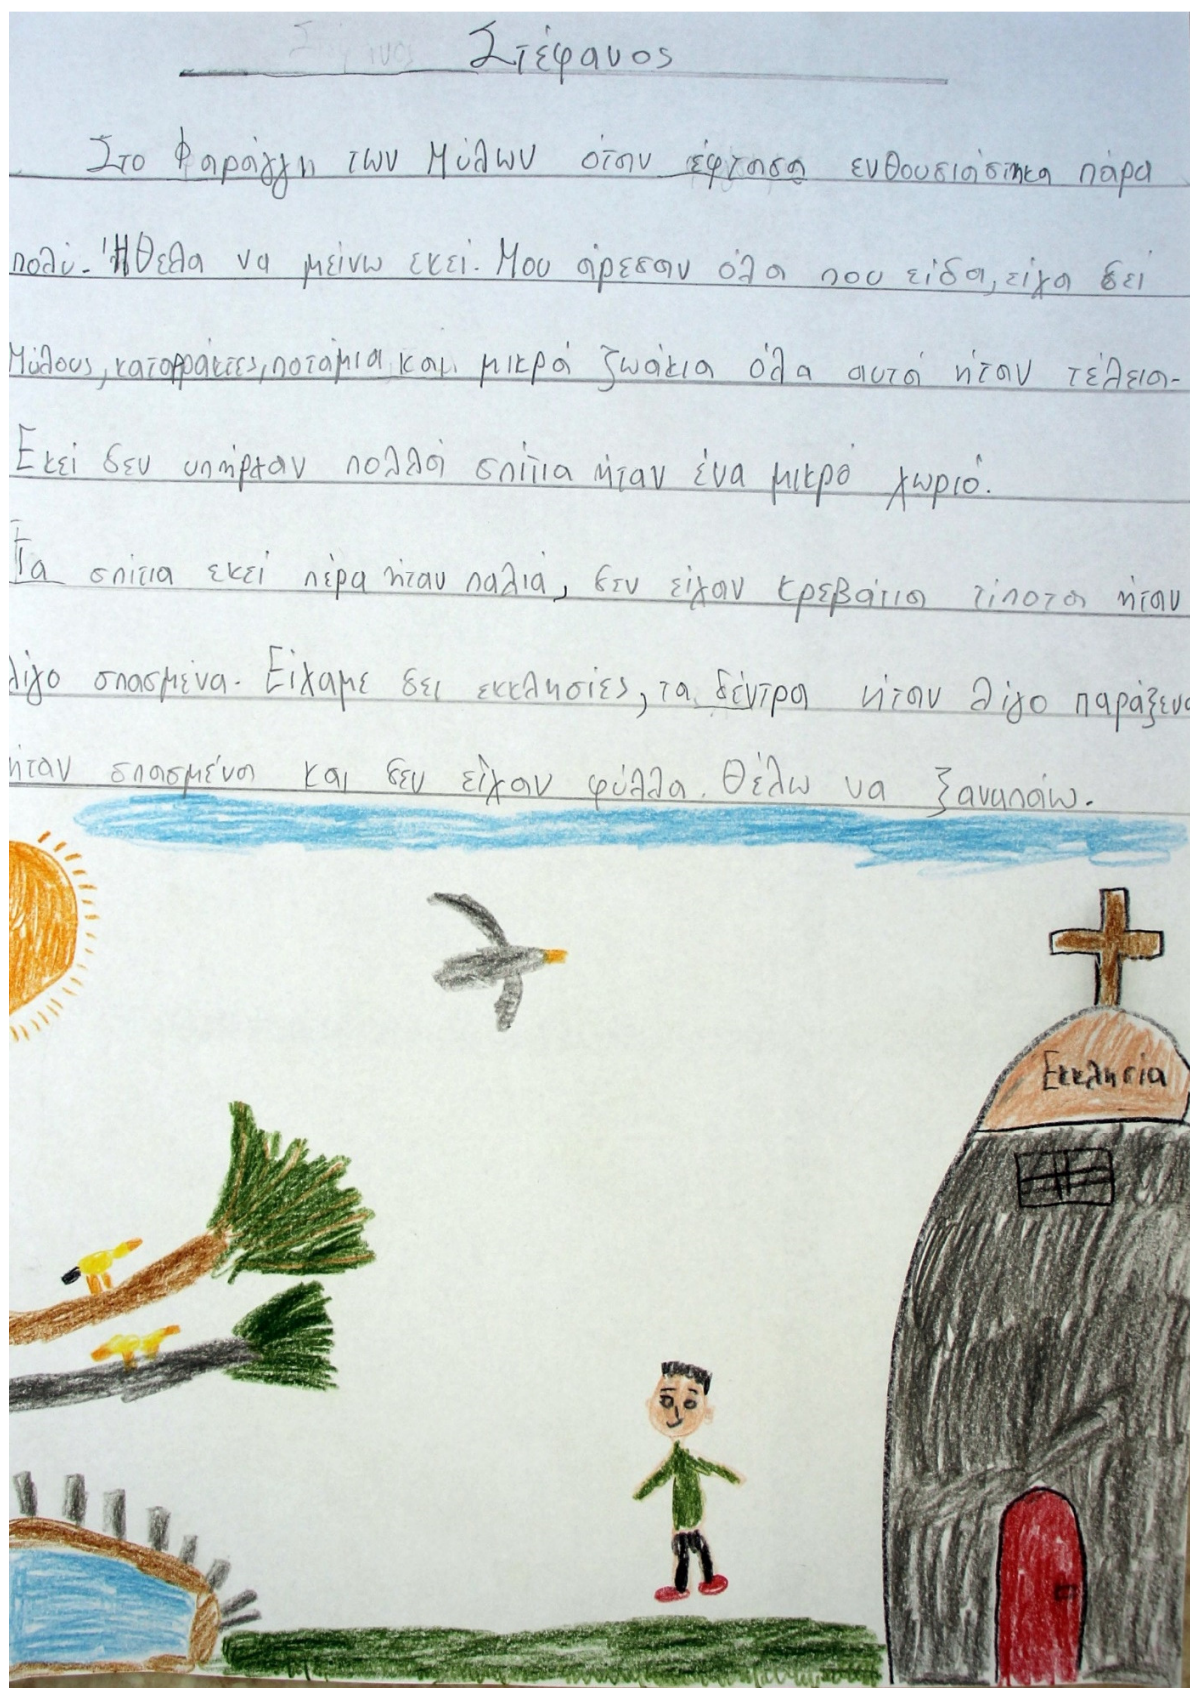 Στέφανος
Στο Φαράγγη των Μύλων όταν έφτασα ενθουσιάστηκα πάρα
πολύ. Ήθελα να μείνω εκεί. Μου άρεσαν όλα που είδα, είχα δει
Μύλους, καταρράκτες, ποτάμια και μικρά ζωάκια όλα αυτά ήταν τέλεια.
Εκεί δεν υπήρχαν πολλά σπίτια ήταν ένα μικρό χωριό.
Τα σπίτια εκεί πέρα ήταν παλιά, δεν είχαν κρεβάτια τίποτα ήταν
λίγο σπασμένα. Είχαμε δει εκκλησίες, τα δέντρα ήταν λίγο παράξενα
ήταν σπασμένα και δεν είχαν φύλλα. Θέλω να ξαναπάω.
Εκκλησία